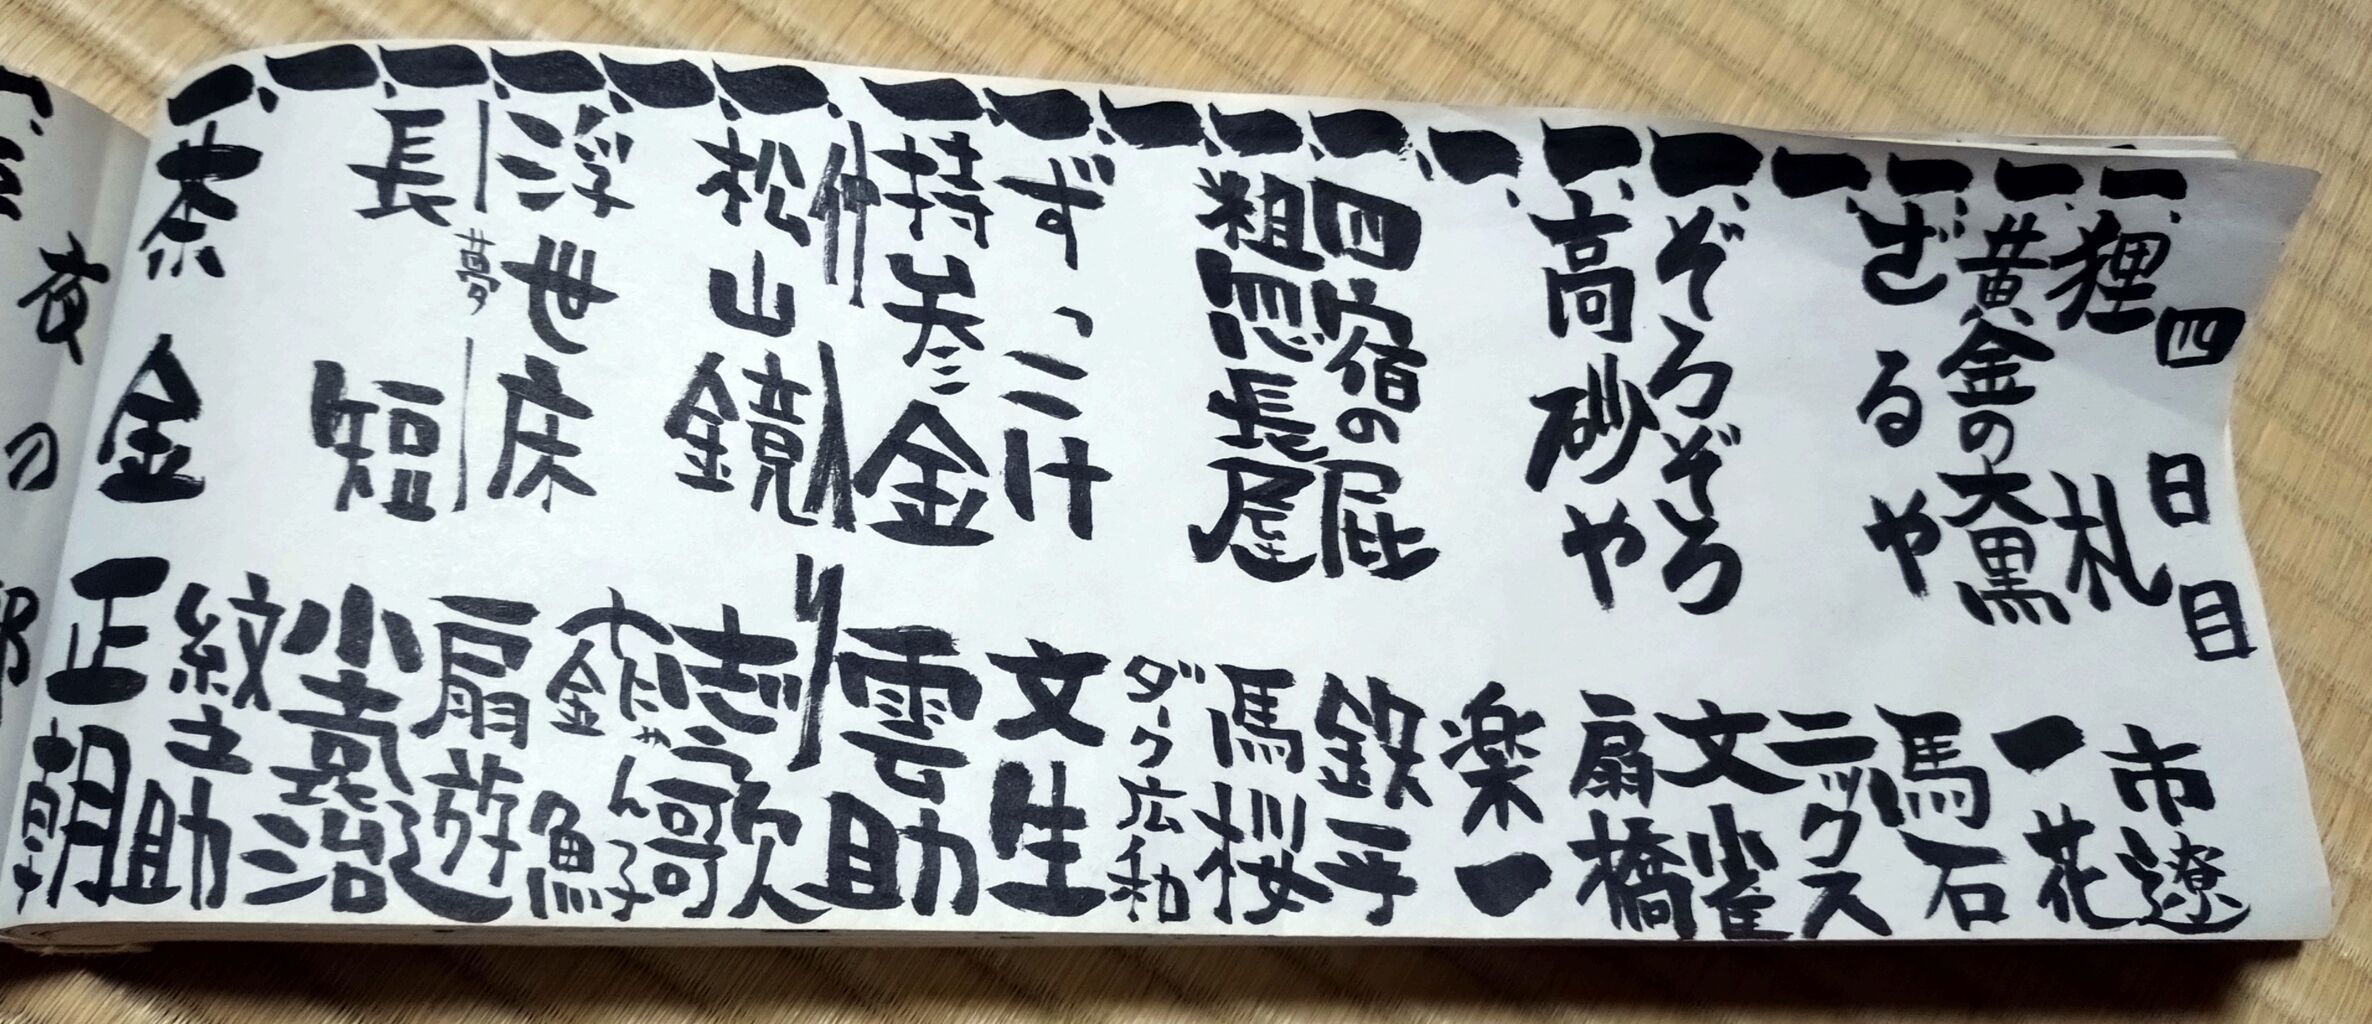 四日目
一、狸札 市遼
一、黄金の大黒 一花
一、ざるや 馬石
一、 ニックス
一、ぞろぞろ 文雀
一、高砂や 扇橋
一、 楽一
一、四宿の屁 鉄平
一、粗忽長屋 馬桜
一、 ダーク広和
一、ずっこけ 文生
一、持参金 雲助
仲入り
一、松山鏡 志う歌
一、 にゃん子 金魚
一、浮世床 扇遊
夢
一、長短 小袁治
一、 紋之助
一、茶金 正朝
夜の部